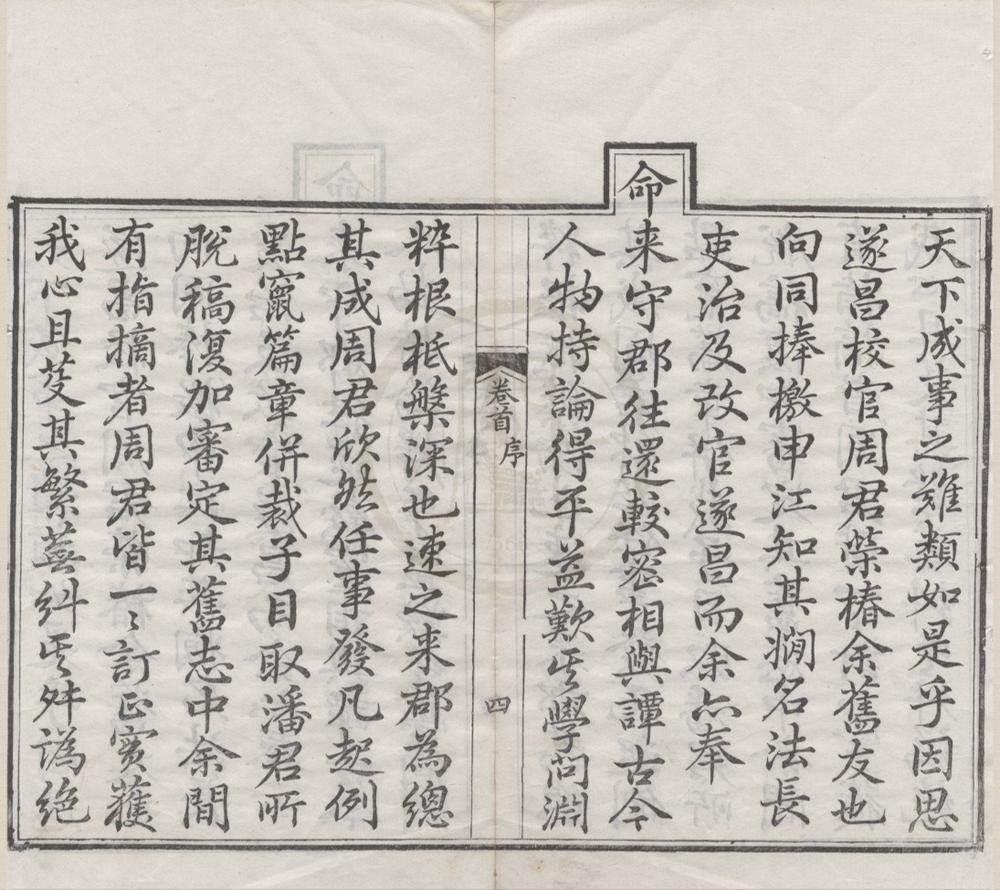 天下成事之難類如是乎因思
遂昌校官周君榮椿余舊友也
向同捧檄申江知其嫻名法長
吏治及改官遂昌而余亦奉
命來守郡往還較密相與譚古今
人物持論得平益歎其學問淵
卷首 序
四
粹根柢槃深也速之来郡為總
其成周君欣然任事發凡起例
點竄篇章併裁子目取潘君所
脫稿復加審定其舊志中余間
有指摘者周君皆一〻訂正實獲
我心且芟其繁蕪糾其舛譌絕